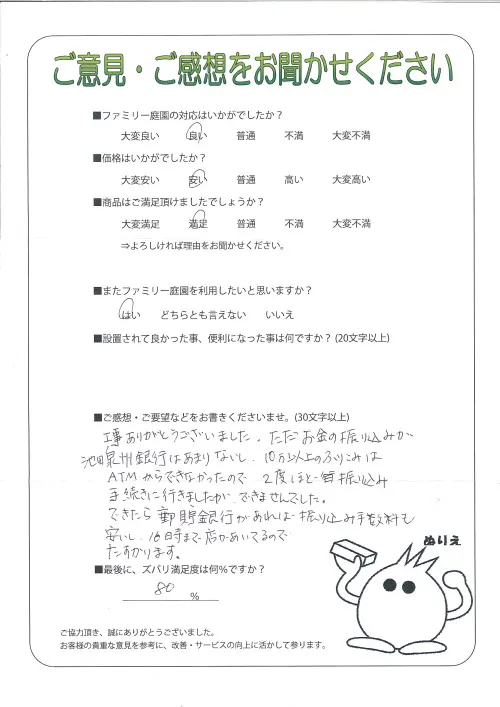 ご意見・ご感想をお聞かせください
■ファミリー庭園の対応はいかがでしたか？
大変良い 良い 普通 不満 大変不満
■価格はいかがでしたか？
大変安い 安い 普通 高い 大変高い
■商品はご満足頂けましたでしょうか？
大変満足 満足 普通 不満 大変不満
⇒よろしければ理由をお聞かせください。
■またファミリー庭園を利用したいと思いますか？
はい どちらとも言えない いいえ
■設置されて良かった事、便利になった事は何ですか？(20文字以上)
■ご感想・ご要望などをお書きくださいませ。(30文字以上)
工事ありがとうございました。ただお金の振り込みが
池田泉州銀行はあまりないし、10万以上のふりこみは
ATMからできなかったので 2度ほど 振り込み
手続きに行きましたが できませんでした。
できたら 郵貯銀行があれば 振り込み手数料も
安いし、16時まで店があいてるので
たすかります。
ぬりえ
■最後に、ズバリ満足度は何％ですか？
80 %
ご協力頂き、誠にありがとうございました。
お客様の貴重な意見を参考に、改善・サービスの向上に活かして参ります。